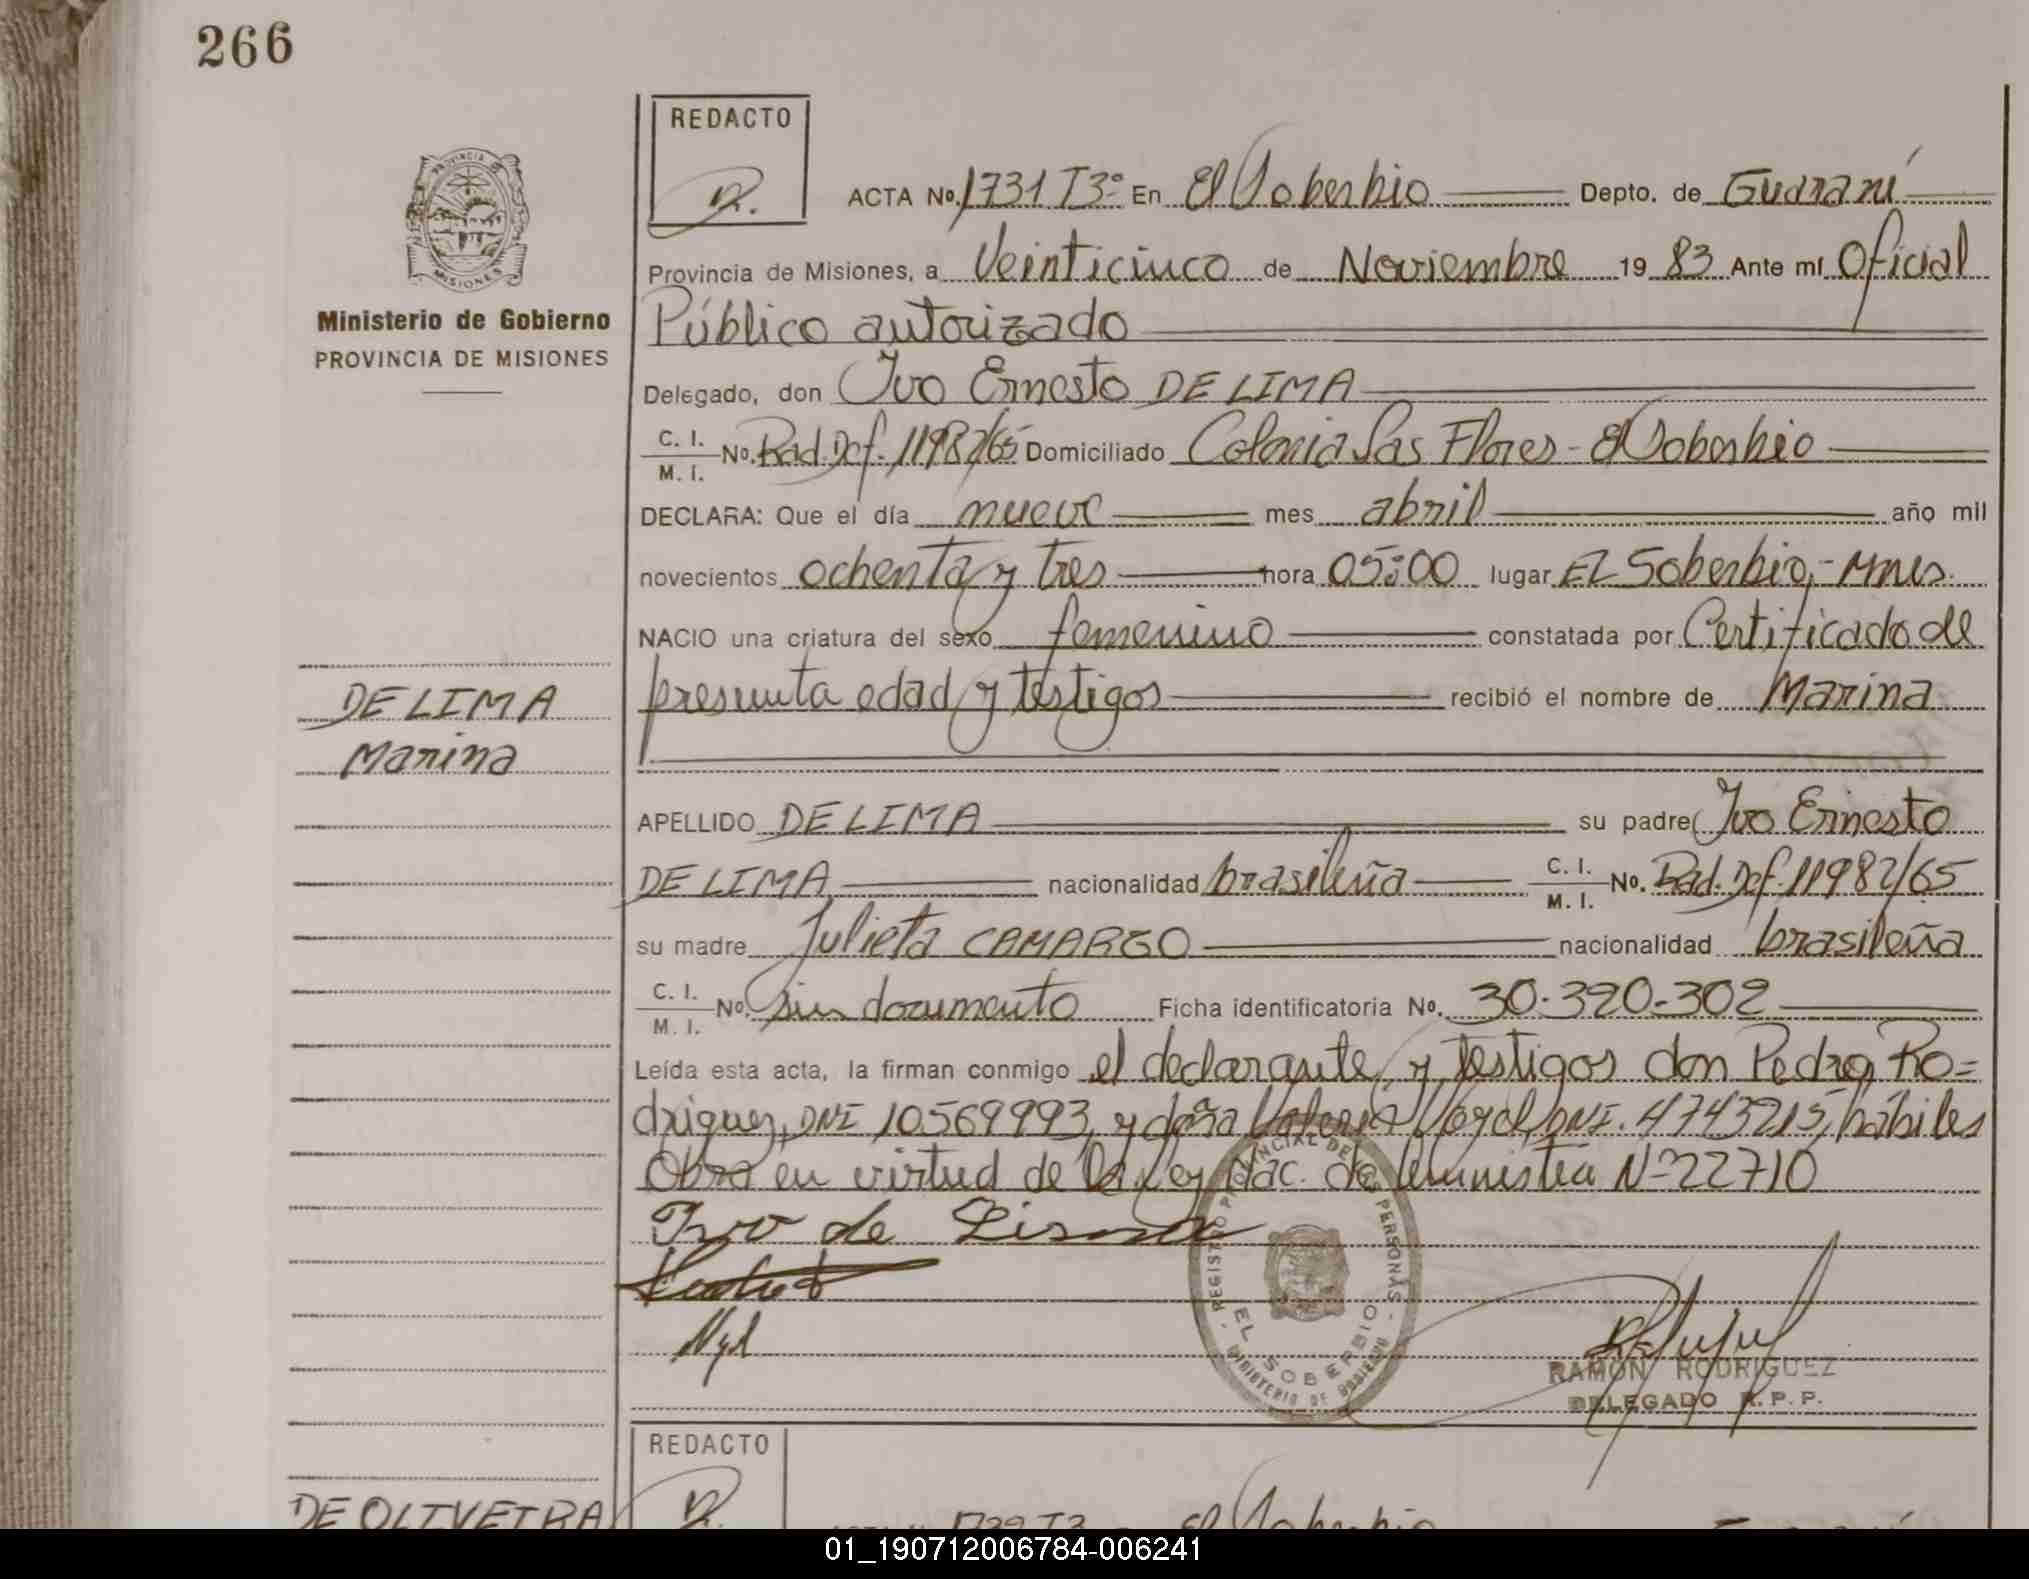 266
REDACTO
ACTA No. 1731 T3º En El Soberbio Depto. de Guaraní
PROVINCIA DE MISIONES
Provincia de Misiones, a Veinticinco de Noviembre 19 83 Ante mí Oficial
Ministerio de Gobierno
Público autorizado
PROVINCIA DE MISIONES
Delegado, don Ivo Ernesto DE LIMA
C. I. M. I. No. Rad. Def. 11982/65 Domiciliado Colonia Las Flores - El Soberbio
DECLARA: Que el día nueve mes abril año mil
novecientos ochenta y tres hora 05:00 lugar EL Soberbio,- Mnes.
NACIO una criatura del sexo femenino constatada por Certificado de
DE LIMA
presunta edad y testigos recibió el nombre de Marina
Marina
APELLIDO DE LIMA su padre Ivo Ernesto
DE LIMA nacionalidad brasileña C. I. M. I. No. Rad. Def. 11982/65
su madre Julieta CAMARGO nacionalidad brasileña
C. I. M. I. No. sin documento Ficha identificatoria No. 30.320.302
Leída esta acta, la firman conmigo el declarante, y testigos don Pedro Ro=
driguez, DNI 10569993, y doña DNI. 4743215, hábiles
Obra en virtud de la Ley Nac. de N° 22710
Ivo de Lima
REGISTRO PROVINCIAL DE LAS PERSONAS
EL SOBERBIO
MINISTERIO DE GOBIERNO
RAMON RODRIGUEZ
DELEGADO R. P. P.
REDACTO
DE OLIVEIRA
El Soberbio
01_190712006784-006241